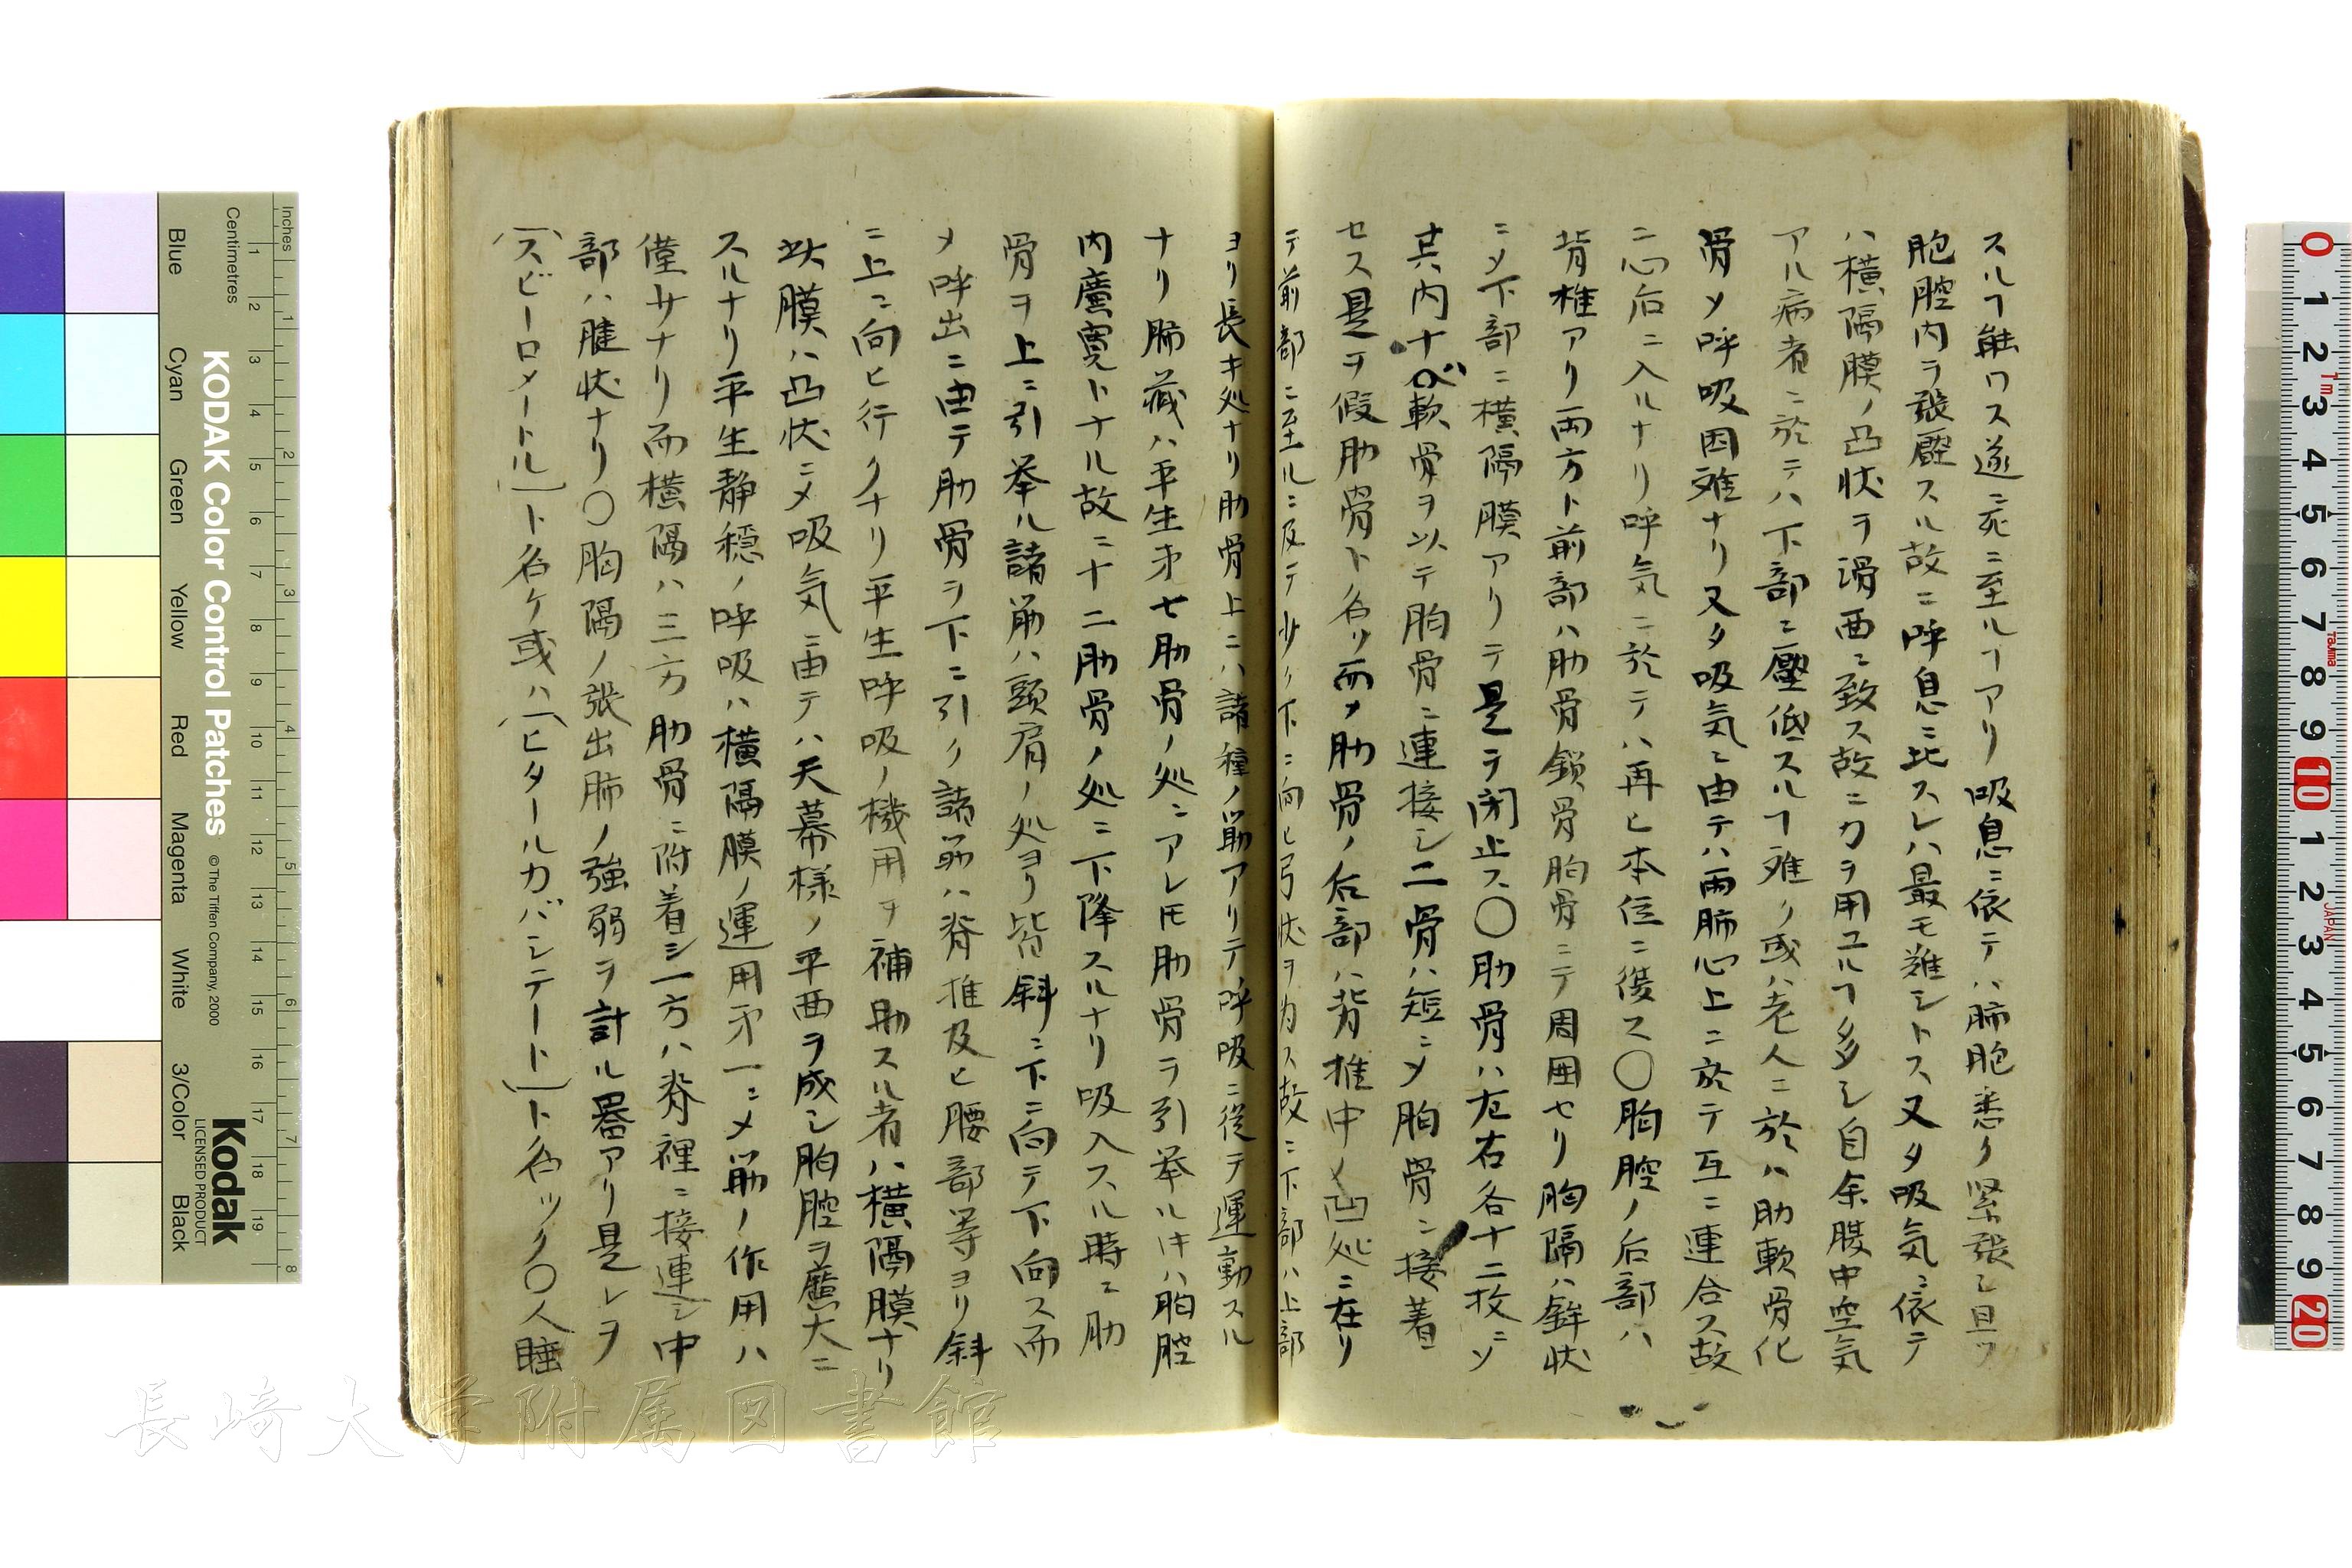 スルヿ能ワス遂ニ死ニ至ルヿアリ吸息ニ依テハ肺胞悉ク緊張シ且ツ
胞腔内ヲ張壓スル故ニ呼息ニ比スレハ最モ難シトス又タ吸気ニ依テ
ハ横隔膜ノ凸状ヲ滑面ニ致ス故ニ力ヲ用ユルヿ多シ自余腹中空気
アル病者ニ於テハ下部ニ壓低スルヿ難ク或ハ老人ニ於ハ肋軟骨化
骨メ呼吸困难ナリ又タ吸気ニ由テハ両肺心上ニ於テ互ニ連合ス故
ニ心后ニ入ルナリ呼気ニ於テハ再ヒ本位ニ復ス〇胸腔ノ后部ハ
背椎アリ両方ト前部ハ肋骨鎖骨胸骨ニテ周囲セリ胸隔ハ鉾状
ニメ下部ニ横隔膜アリテ是ヲ閉止ス〇肋骨ハ左右各十二枚ニソ
其内十ハ軟骨ヲ以テ胸骨ニ連接シ二骨ハ短ニメ胸骨ニ接着
セス是ヲ假肋骨ト名リ而メ肋骨ノ后部ハ背推中ノ凹処ニ在リ
テ前部ニ至ルニ及テ少ク下ニ向ヒ弓状ヲ為ス故ニ下部ハ上部
ヨリ長キ処ナリ肋骨上ニハ諸種ノ筋アリテ呼吸ニ従テ運動スル
ナリ肺蔵ハ平生才七肋骨ノ処ニアレ𪜈肋骨ヲ引挙ルキハ胸腔
内廣寛トナル故ニ十二肋骨ノ処ニ下降スルナリ吸入スル時ニ肋
骨ヲ上ニ引挙ル諸筋ハ頭肩ノ処ヨリ皆斜ニ下ニ向テ下向ス而
メ呼出ニ由テ肋骨ヲ下ニ引ク諸筋ハ脊推及ヒ腰部等ヨリ斜
ニ上ニ向ヒ行クナリ平生呼吸ノ機用ヲ補助スル者ハ横隔膜ナリ
此膜ハ凸状ニメ吸気ニ由テハ天幕様ノ平面ヲ成シ胸腔ヲ廣大ニ
スルナリ平生静穏ノ呼吸ハ横隔膜ノ運用才一ニメ筋ノ作用ハ
僅少ナリ而横隔ハ三方肋骨ニ附着シ一方ハ脊裡ニ接連シ中
部ハ腱状ナリ〇胸隔ノ張出肺ノ強弱ヲ計ル器アリ是レヲ
(スビーロメートル)ト名ケ或ハ(ヒタールカバシテート)ト名ツク〇人睡
長崎大学附属図書館
Inches
Centimetres
KODAK Color Control Patches
© The Tiffen Company, 2000
Kodak
LICENSED PRODUCT
Blue
Cyan
Green
Yellow
Red
Magenta
White
3/Color
Black
1 2 3 4 5 6 7 8 9 10 11 12 13 14 15 16 17 18 19
1 2 3 4 5 6 7 8
0 1 2 3 4 5 6 7 8 9 10 1 2 3 4 5 6 7 8 9 20
1m
Tajima
JAPAN